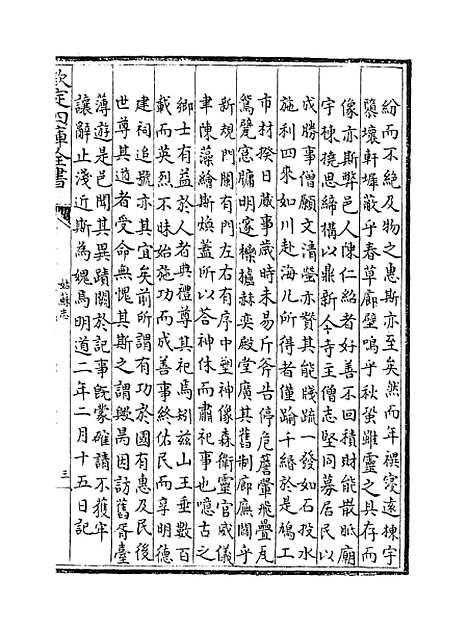 紛而不絶及物之惠斯亦至矣然而年禩寖遠棟宇
隳壊軒墀蔽乎春草廊壁鳴乎秋蛩雖靈之具存而
像亦斯弊邑人陳仁紹者好善不回積財能散眂廟
宇棟撓思締構以鼎新今寺主僧志堅同募居民以
成勝事僧願文清瑩亦賛其能牋疏一發如石投水
施利四來如川赴海凡所得者僅踰千緡於是鳩工
市材揆日蕆事歲時未易斤斧告停危簷翬飛疊瓦
鴛甃窓牖明邃櫟櫨赫奕殿堂廣其舊制廊廡闢乎
新規門闗有門左右有序中塑神像森衛靈官威儀
聿陳藻繪斯煥蓋所以答神休而肅祀事也噫古之
鄉士有益於人者典禮尊其祀焉矧兹山王垂數百
載而英烈不昧始施功而成善事終佑民而享明德
建祠追號亦其宜矣前所謂有功於國有惠及民後
世尊其道者受命無愧其斯之謂歟昺因訪舊胥臺
薄遊是邑聞其異蹟闗於記事旣蒙確請不獲牢
讓辭止淺近斯為媿焉明道二年二月十五日記
欽定四庫全書
姑蘇志
三